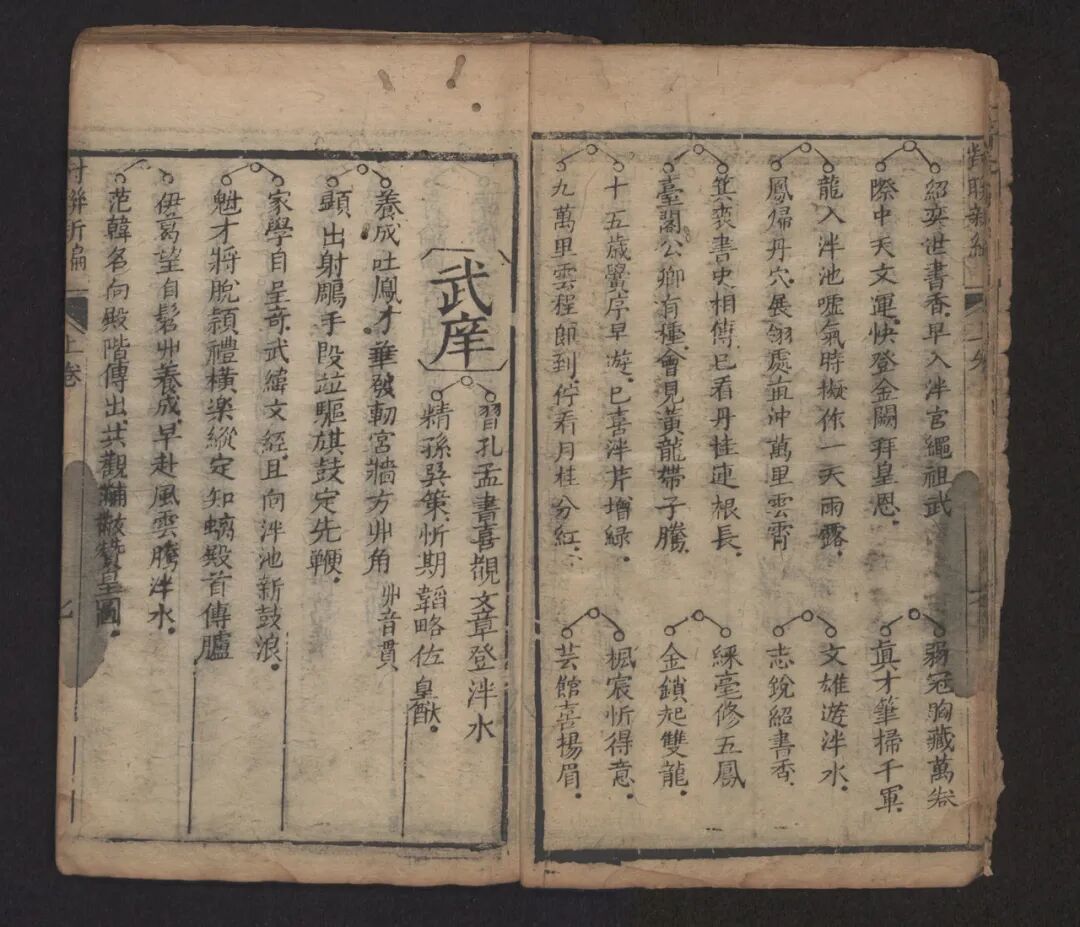 對聯新編
紹奕世書香早入泮宮繩祖武
際中天文運快登金闕拜皇恩
龍入泮池噓氣時擬你一天雨露
鳳歸丹穴展翎處並沖萬里雲霄
箕裘書史相傳已看丹桂連根長
臺閣公卿有種會見黃龍帶子騰
十五歲黌序早遊已喜泮芹增綠
九萬里雲程即到佇看月桂分紅
弱冠胸藏萬卷
真才筆掃千軍
文雄遊泮水
志銳紹書香
綵毫修五鳳
金鎖起雙龍
楓宸忻得意
芸館喜揚眉
武庠
習孔孟書喜覩文章登泮水
精孫吳策忻期韜略佐皇猷
養成吐鳳才華敏軔宮牆方丱角 丱音貫
顯出射鵰手段並驅旗鼓定先鞭
家學自呈奇武緯文經且向泮池新鼓浪
魁才將脫穎禮橫樂縱定知螭殿首傳臚
伊葛望自髫丱養成早赴風雲騰泮水
范韓名向殿階傳出共觀黼黻贊皇圖
對聯新編
上卷
七